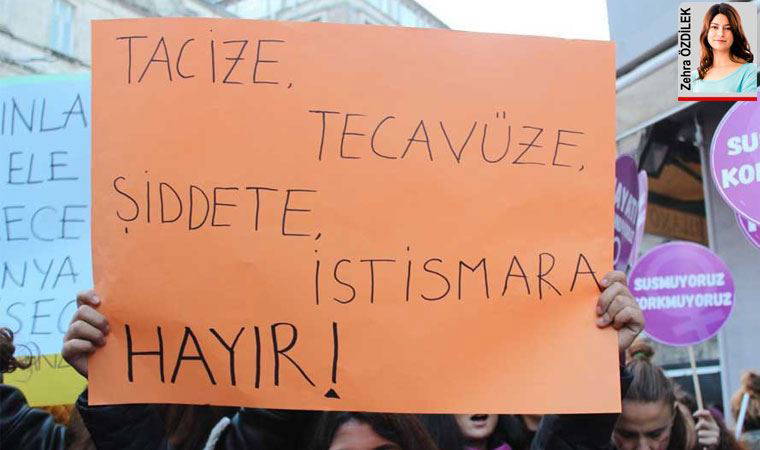 TACİZE,
TECAVÜZE,
ŞİDDETE,
İSTİSMARA
HAYIR!
INLA
ELE
ECE
NYA
SEÇ
SUSMUYORUZ
KORKMUYORUZ
SU
KORK
Zehra ÖZDİLEK